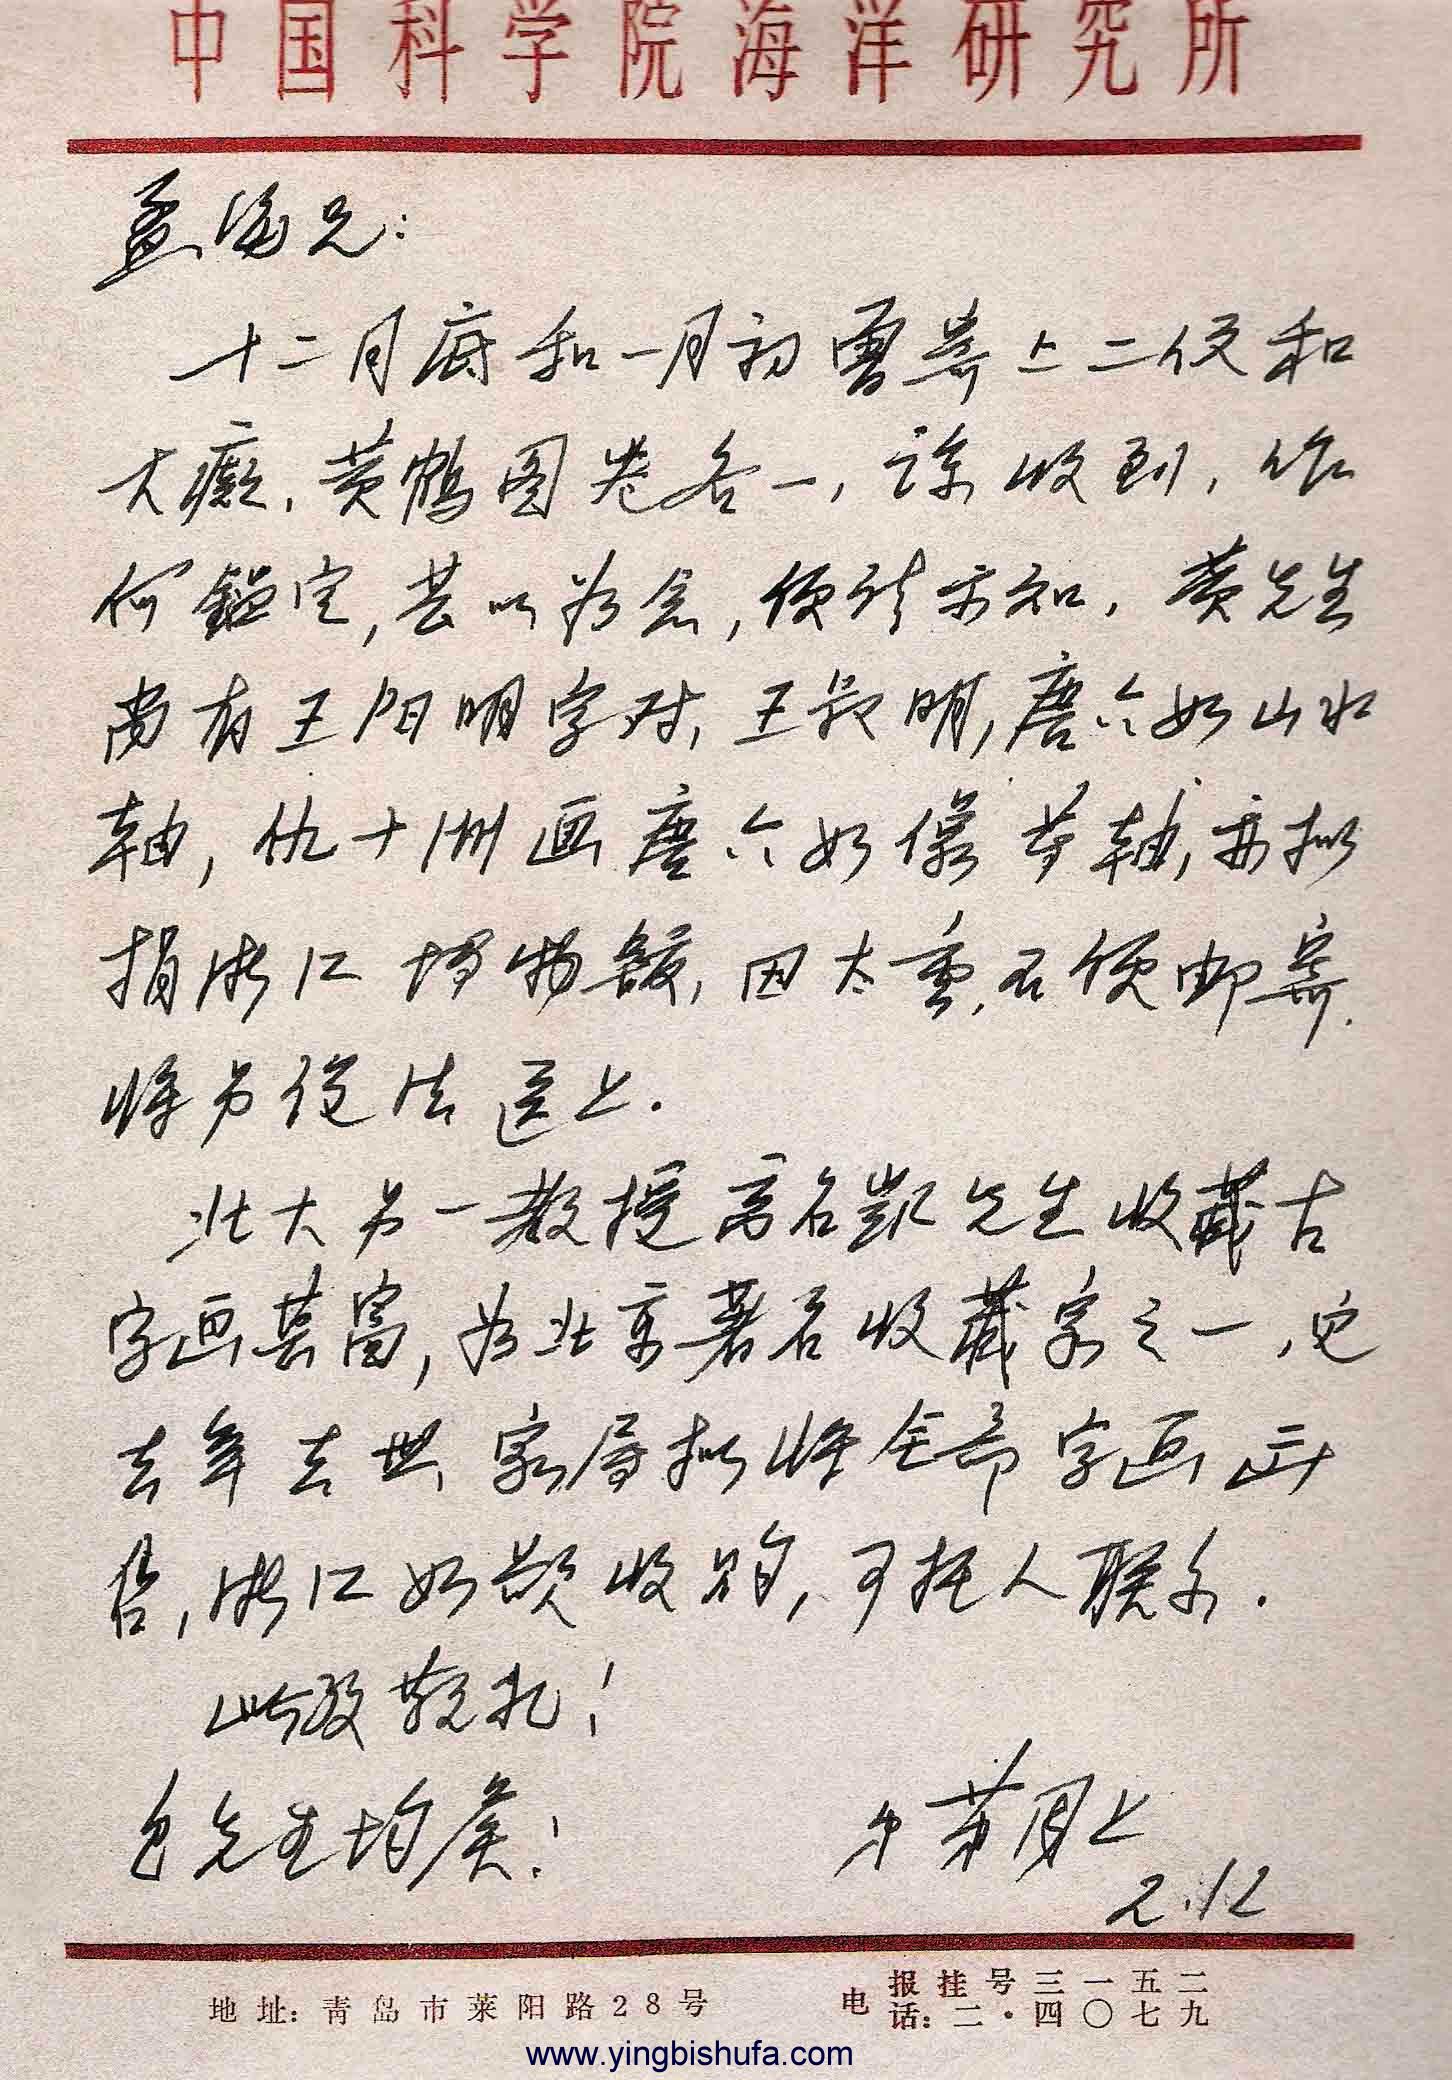 中国科学院海洋研究所
孟海兄:
十二月底和一月初曾寄上二信和
大癡、黄鹤图卷各一,谅收到,作
何鑑定,甚以为念,便请示知。黄先生
尚有王阳明字对,王 明,唐六如山水
轴,仇十洲画唐六如像等轴,亦拟
捐浙江博物馆,因太重,不便邮寄。
将另设法送上.
北大另一教授高名凯先生收藏古
字画甚富,为北京著名收藏家之一,
去年去世、家属拟将全部字画出
售,浙江如欲收购,可托人联系.
此致敬礼!
包先生均候!
弟 上
2.12
地址:青岛市莱阳路28号
电报挂号三一五二
电话:二·四〇七九
www.yingbishufa.com